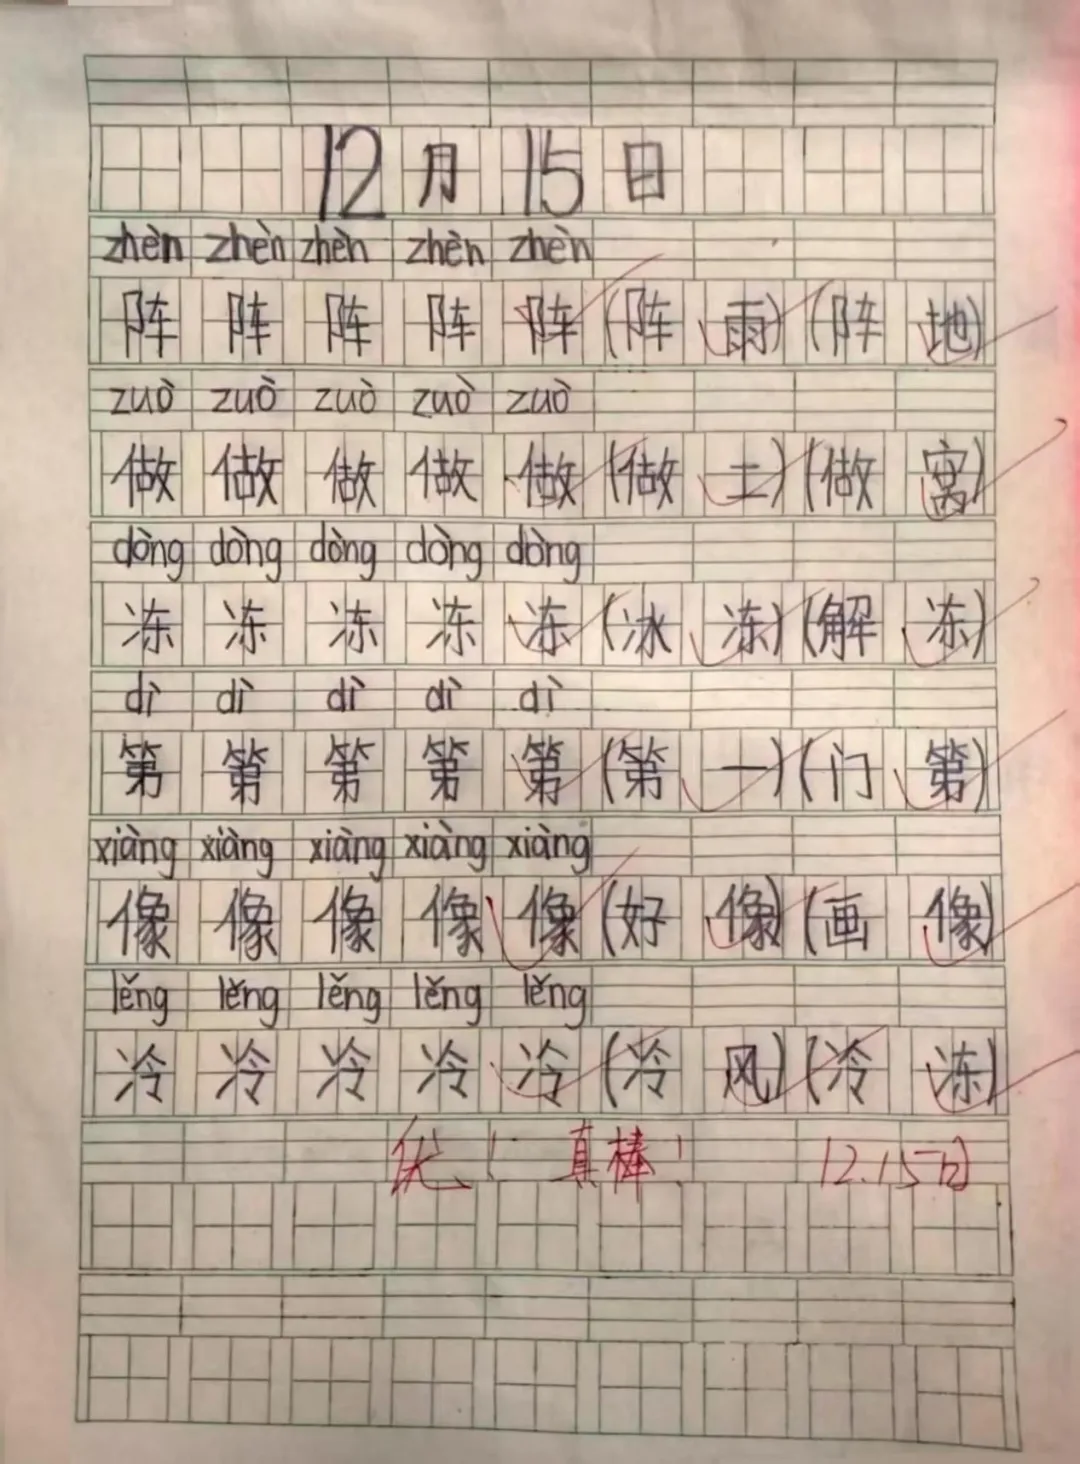 12月15日
zhèn zhèn zhèn zhèn zhèn
阵 阵 阵 阵 阵 (阵雨) (阵地)
zuò zuò zuò zuò zuò
做 做 做 做 做 (做土) (做窝)
dòng dòng dòng dòng dòng
冻 冻 冻 冻 冻 (冰冻) (解冻)
dì dì dì dì dì
第 第 第 第 第 (第一) (门第)
xiàng xiàng xiàng xiàng xiàng
像 像 像 像 像 (好像) (画像)
lěng lěng lěng lěng lěng
冷 冷 冷 冷 冷 (冷风) (冷冻)
优! 真棒! 12.15日